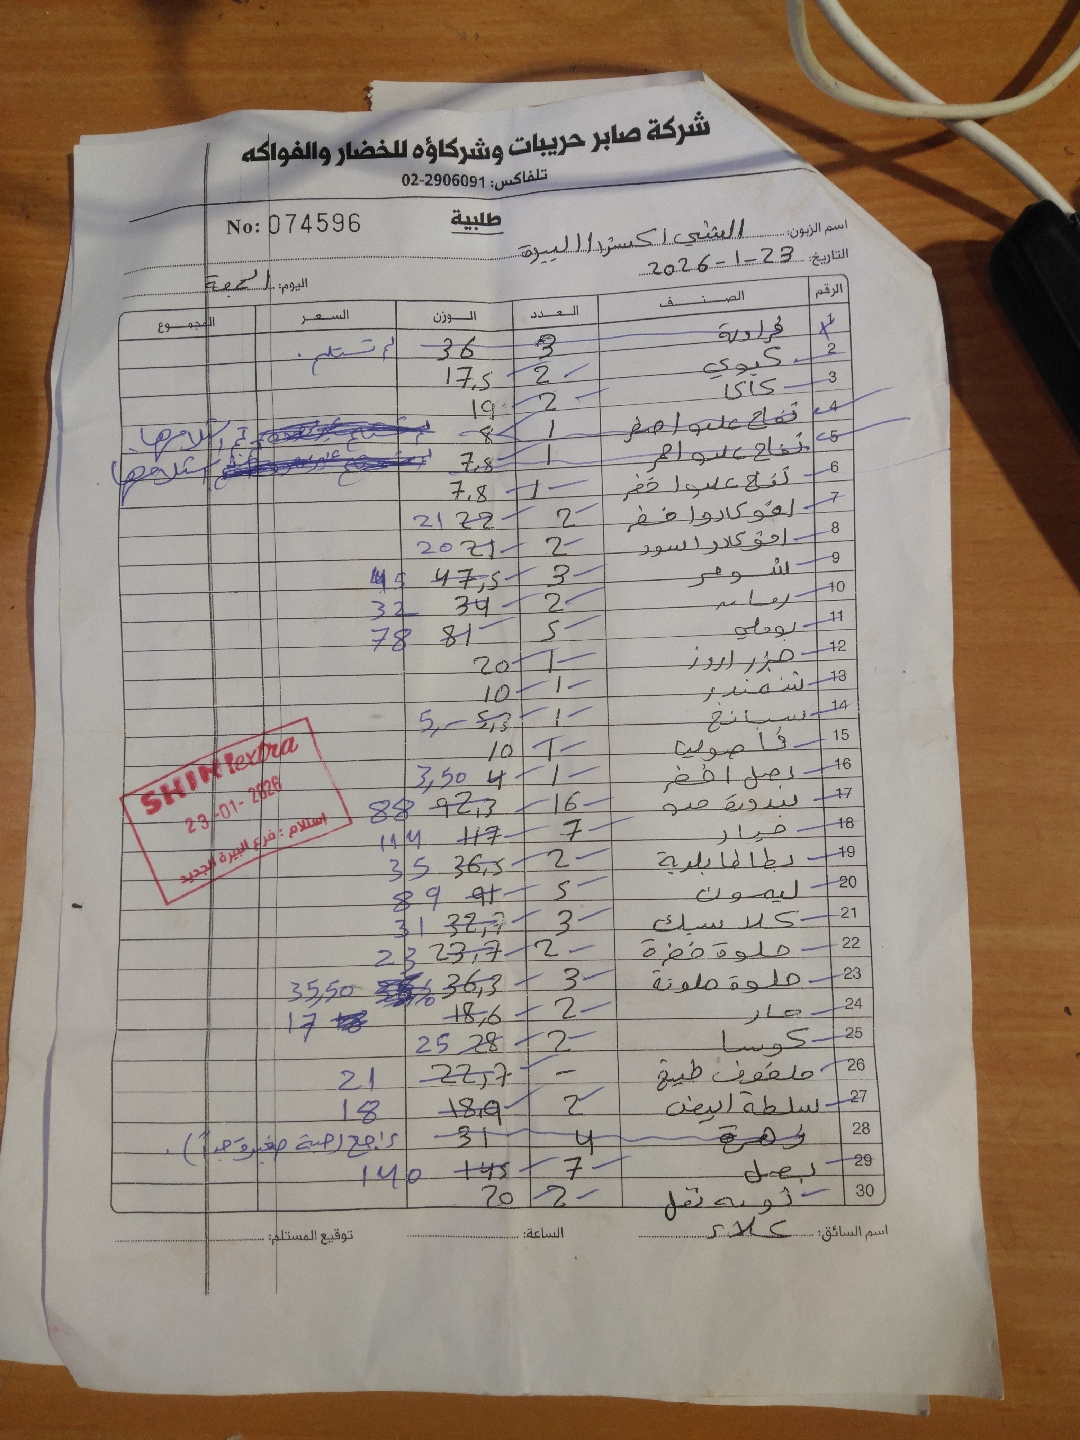 شركة صابر حريبات وشركاؤه للخضار والفواكه
تلفاكس: 02-2906091
No: 074596
طلبية
اسم الزبون: الشني اكسترا البيرة
التاريخ: 23-1-2026
اليوم: الجمعة
الرقم الصنف العدد الوزن السعر المجموع
1 3 36 لم تستلم.
2 كيوي 2 17,5
3 كاكا 2 19
4 تفاح علبو اصفر 1 8 تم استلامها
5 تفاح علبو احمر 1 7,8 تم استلامها
6 تفاح علبو اخضر 1 7,8
7 افوكادوا خضر 2 22 21
8 افوكادو اسود 2 21 20
9 شومر 3 47,5 45
10 رمان 2 34 32
11 بوملي 5 81 78
12 جزر اروز 1 20
13 شمندر 1 10
14 سبانخ 1 5,3 5,-
15 فاصوليا 1 10
16 بصل اخضر 1 4 3,50
17 بندورة 16 92,3 88
18 خيار 7 117 114
19 بطاطا بلدية 2 36,5 35
20 ليمون 5 91 89
21 كلاسيك 3 32,7 31
22 حلوة خضرة 2 23,7 23
23 حلوة ملونة 3 36,3 35,50
24 حار 2 18,6 17
25 كوسا 2 28 25
26 ملفوف طبيخ - 22,7 21
27 سلطة ابيض 2 18,9 18
28 زهرة 4 31 راجع (حبة صغيرة جداً).
29 بصل 7 145 140
30 2 20
SHINI extra
23-01-2026
استلام: فرع البيرة الجديد
اسم السائق: علاء
الساعة:
توقيع المستلم: